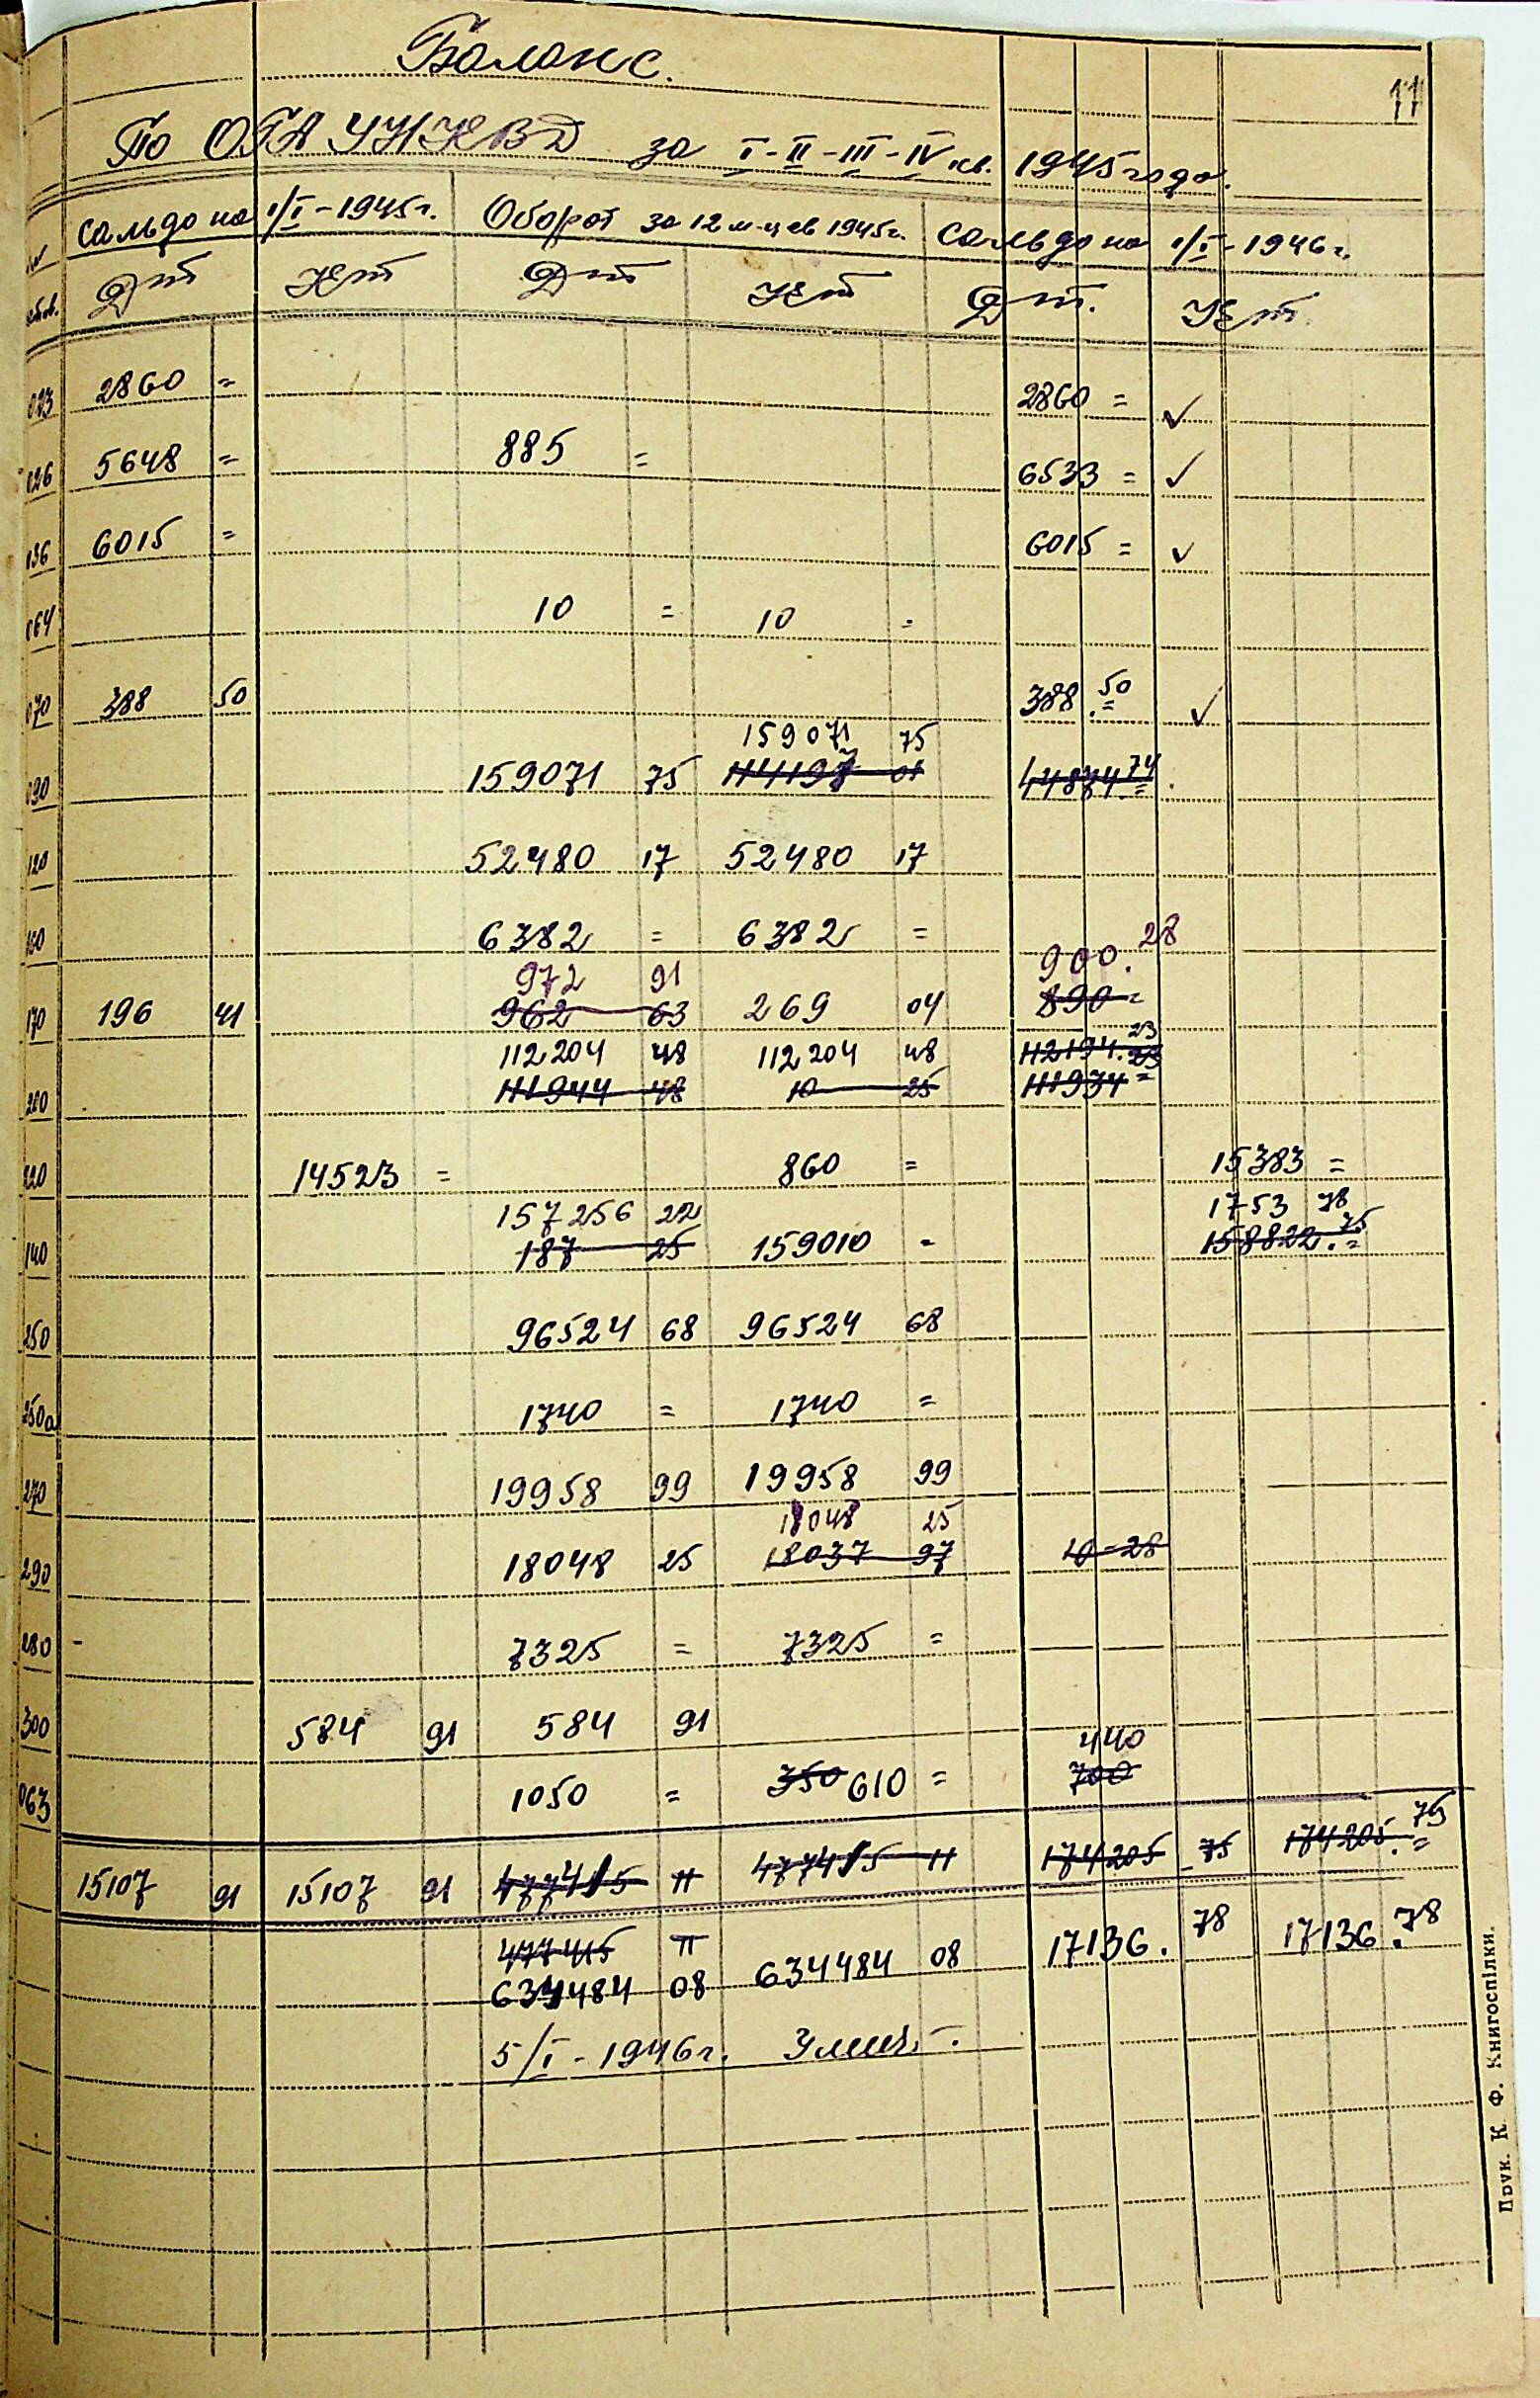 Баланс.
11
По ОГА УНКВД за I-II-III-IV кв. 1945 года.
Сальдо на 1/I-1945г. Оборот за 12 м-цев 1945г. Сальдо на 1/I-1946г.
Дт Кт Дт Кт Дт. Кт.
2860 = 2860 = ✓
026 5648 = 885 = 6533 = ✓
136 6015 = 6015 = ✓
064 10 = 10 =
070 388 50 388.50 = ✓
159071 75
090 159071 75 114197 01 44874.74 =
120 52480 17 52480 17
160 6382 = 6382 =
972 91 900.28
170 196 41 962 63 269 04 890 =
112204 48 112204 48 112194.23
200 111944 48 10 25 111934 23 =
220 14523 = 860 = 15383 =
157256 22 1753 78
140 187 25 159010 = 158822.75 =
250 96524 68 96524 68
250а 1740 = 1740 =
270 19958 99 19958 99
18048 25
290 18048 25 18037 97 10-28
280 - 7325 = 7325 =
300 584 91 584 91
440
063 1050 = 350 610 = 700
15107 91 15107 91 477415 11 477415 11 174205 75 174205.75 =
477415 11
634484 08 634484 08 17136.78 17136.78
5/I-1946г.
Друк. К. Ф. Книгоспілки.